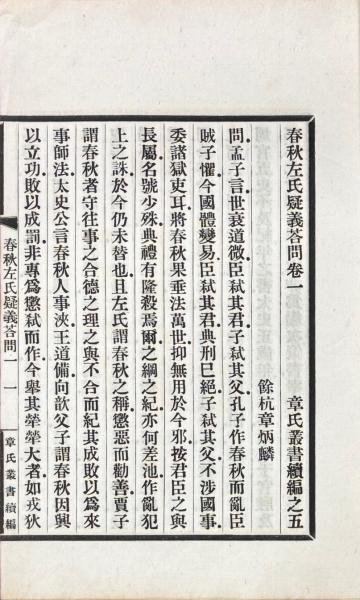 春秋左氏疑義荅問卷一
章氏叢書續編之五
餘杭章炳麟
問孟子言世衰道微臣弑其君子弑其父孔子作春秋而亂臣
賊子懼今國體變易臣弑其君典刑巳絕子弑其父不涉國事
委諸獄吏耳將春秋果垂法萬世抑無用於今邪按君臣之與
長屬名號少殊典禮有隆殺焉爾之綱之紀亦何差池作亂犯
上之誅於今仍未替也且左氏謂春秋之稱懲惡而勸善賈子
謂春秋者守往事之合德之理之與不合而紀其成敗以爲來
事師法太史公言春秋人事浹王道備向歆父子謂春秋因興
以立功敗以成罰非專爲懲弑而作今舉其犖犖大者如戎狄
春秋左氏疑義荅問一
一
章氏叢書續編